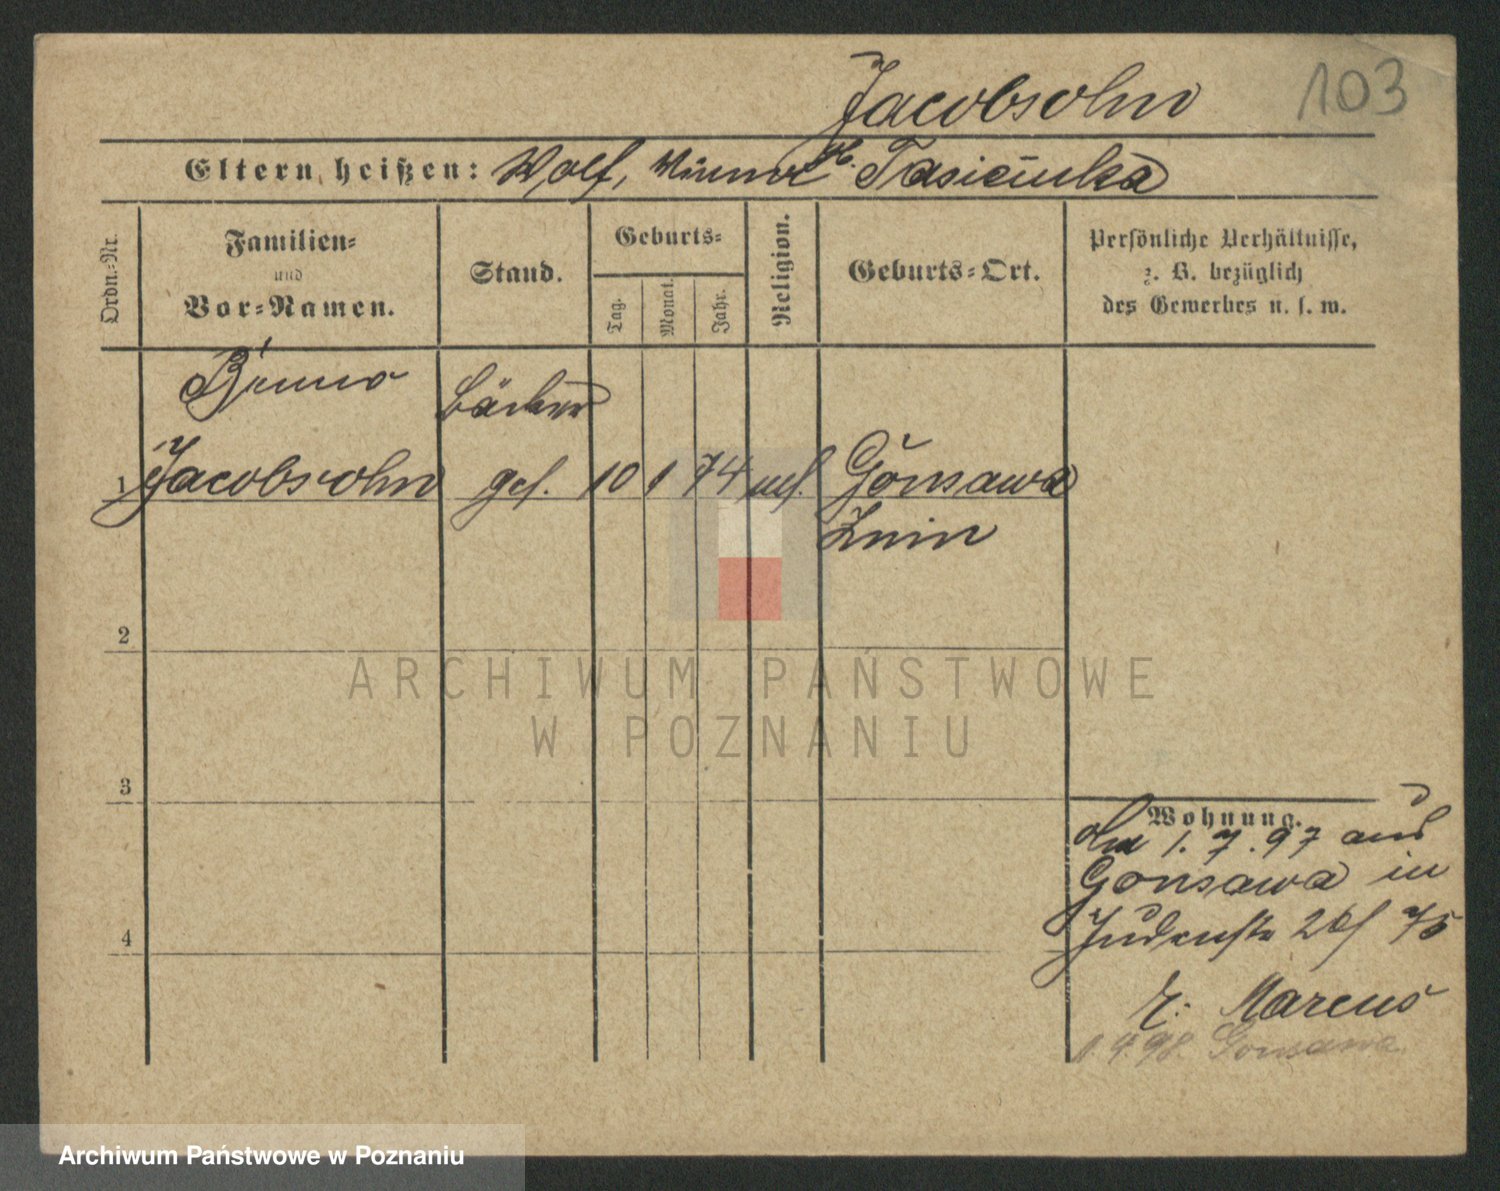 103
Jacobsohn
Eltern heißen: Wolf,
Ordn.-Nr.
Familien-
und
Vor-Namen.
Stand.
Geburts-
Tag.
Monat.
Jahr.
Religion.
Geburts-Ort.
Persönliche Verhältnisse,
z. B. bezüglich
des Gewerbes u. s. w.
Benno
Bäcker
1 Jacobsohn ges. 10 1 74 mos. Gonsawa
Znin
2
3
4
Wohnung.
1. 7. 97 aus
Gonsawa in
Judenstr 26/
Marcus
1 4. 98. Gonsawa
ARCHIWUM PAŃSTWOWE
W POZNANIU
Archiwum Państwowe w Poznaniu